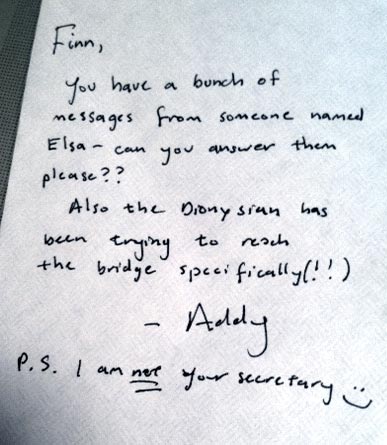 Finn,
You have a bunch of
messages from someone named
Elsa - can you answer them
please??
Also the Dionysian has
been trying to reach
the bridge specifically(!!)
- Addy
P.S. I am not your secretary :)